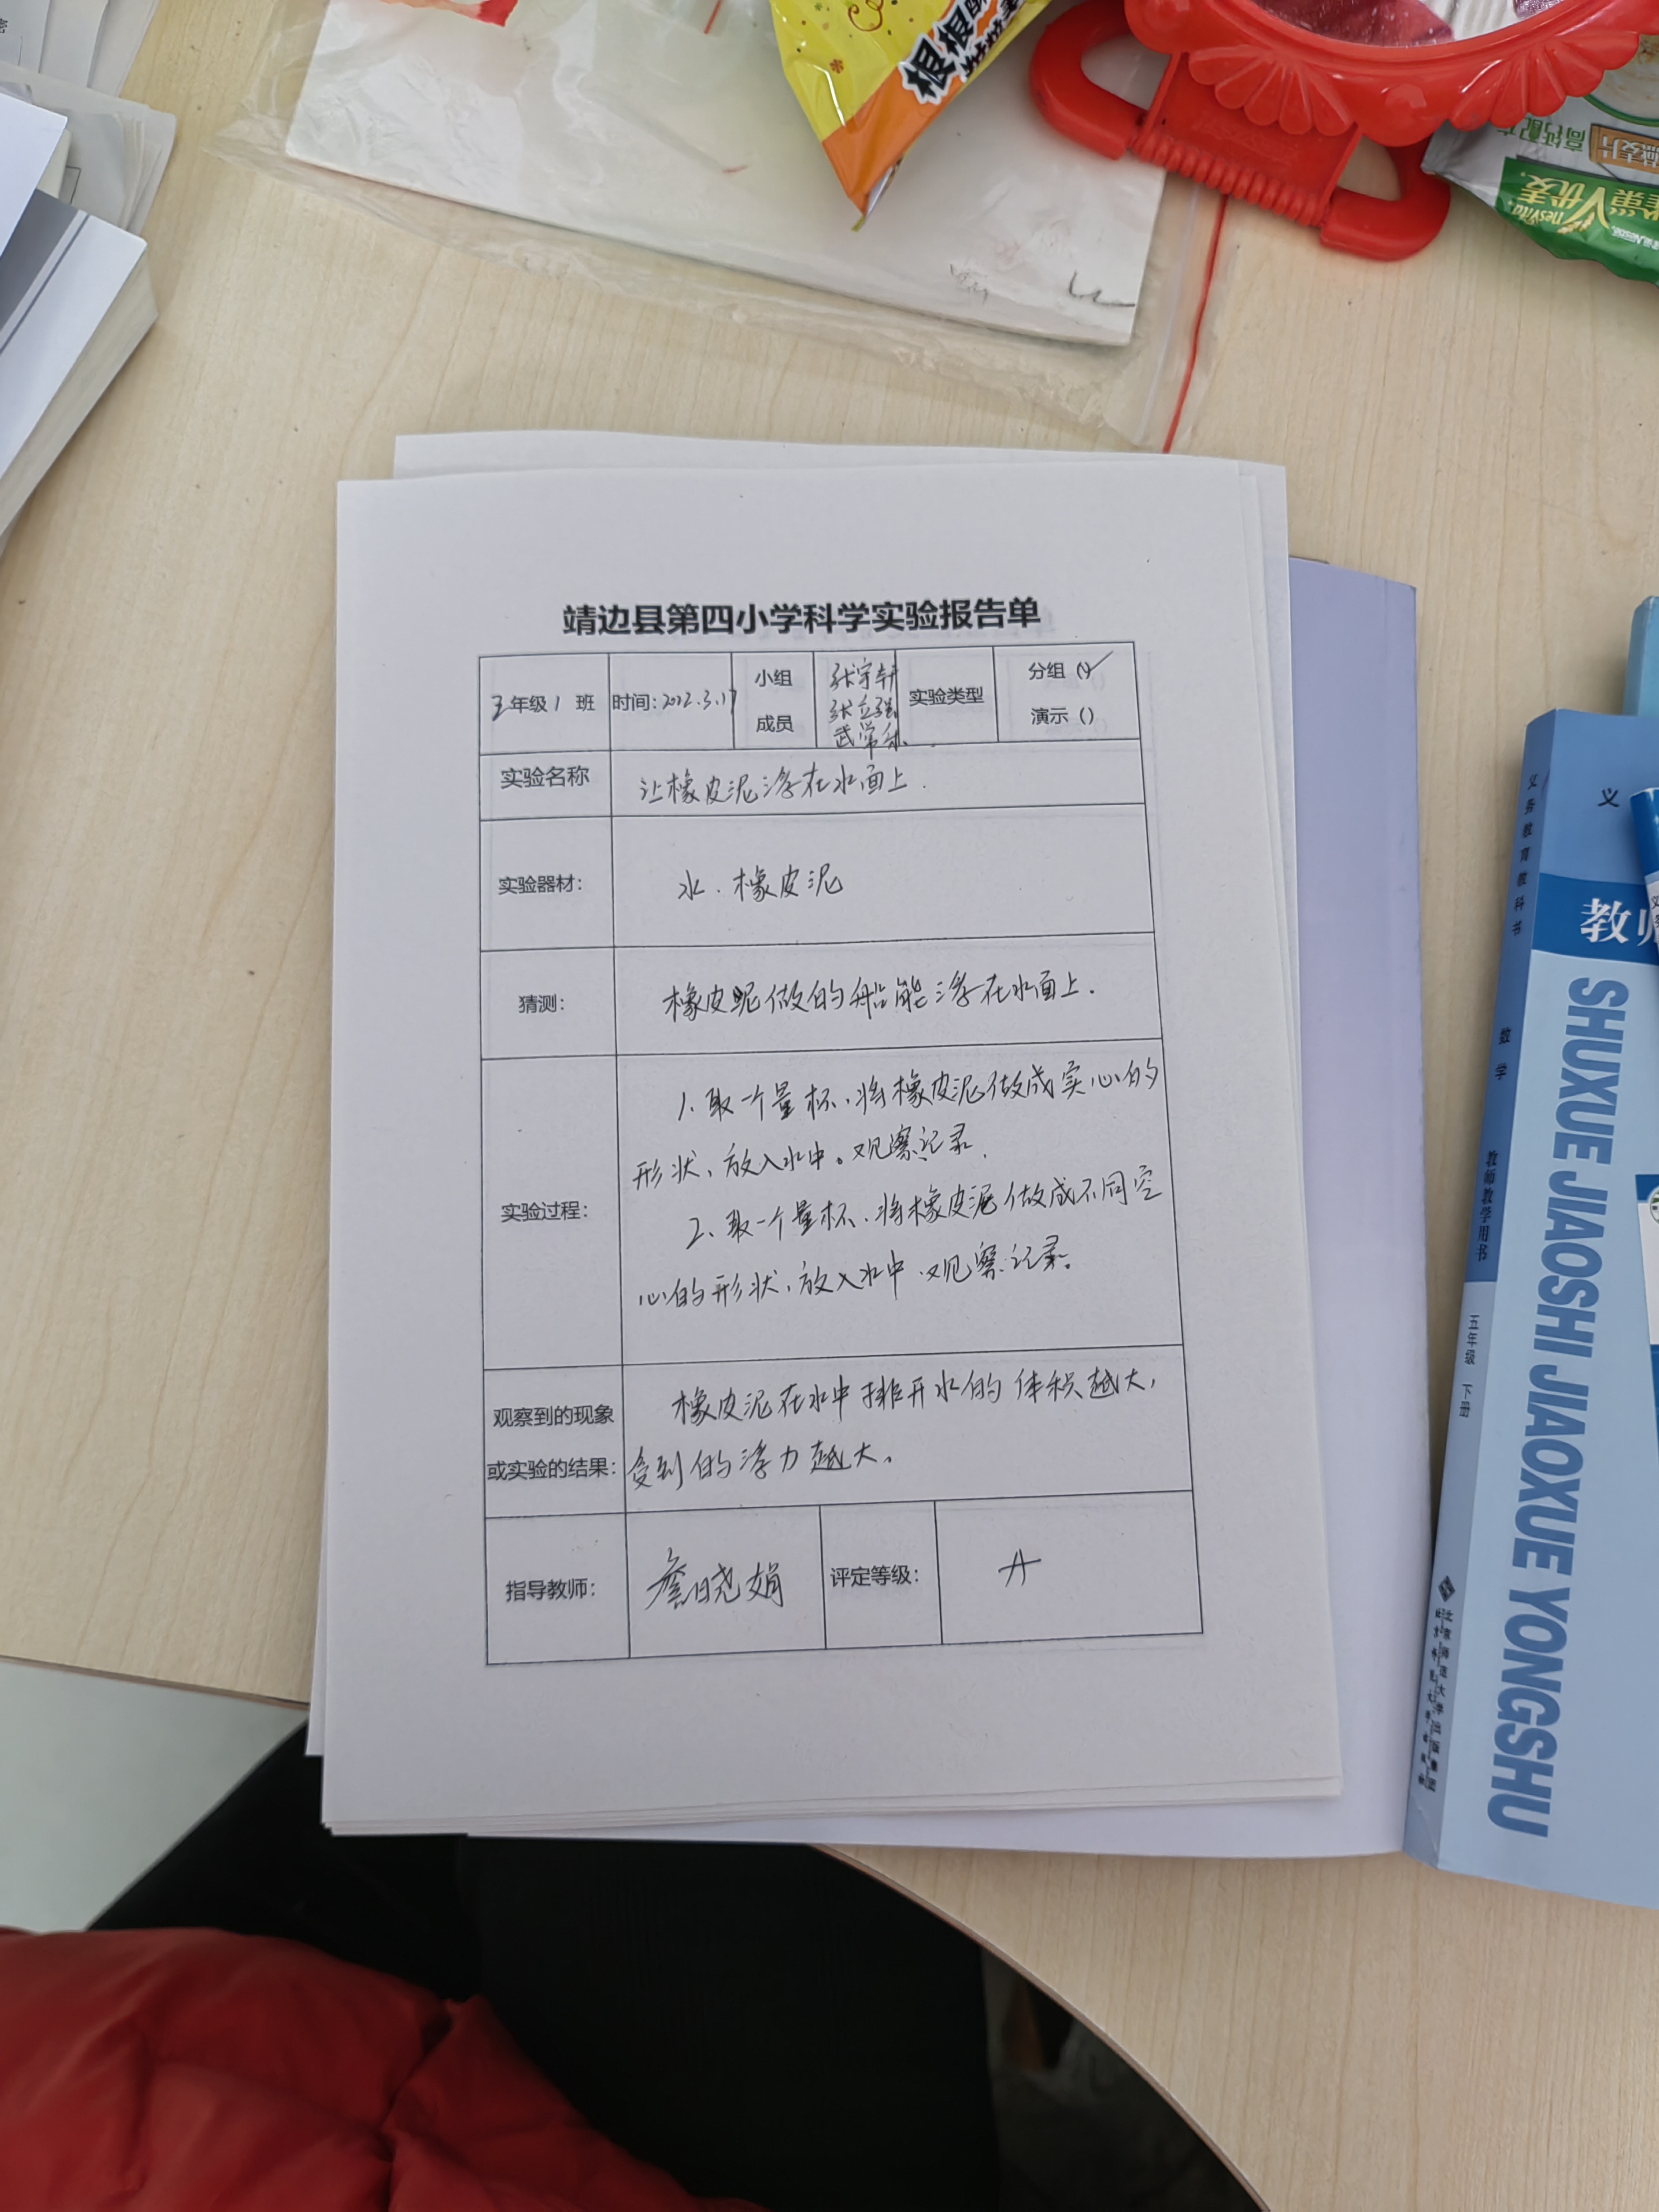 靖边县第四小学科学实验报告单
五年级 1 班
时间:2022.3.17
小组
成员
张宇轩
张立强
武常
实验类型
分组 (√)
演示 ()
实验名称
让橡皮泥浮在水面上.
实验器材:
水.橡皮泥
猜测:
橡皮呢做的船能浮在水面上.
实验过程:
1.取一个量杯、将橡皮泥做成实心的
形状,放入水中。观察记录.
2、取一个量杯、将橡皮泥做成不同空
心的形状,放入水中.观察记录。
观察到的现象
或实验的结果:
橡皮泥在水中排开水的体积越大,
受到的浮力越大.
指导教师:
詹晓娟
评定等级:
A
根根
高钙配方
麦片
优麦
nesVita
义务教育教科书
数学
教师教学用书
五年级 下册
北京师范大学出版集团
义
教师
SHUXUE JIAOSHI JIAOXUE YONGSHU